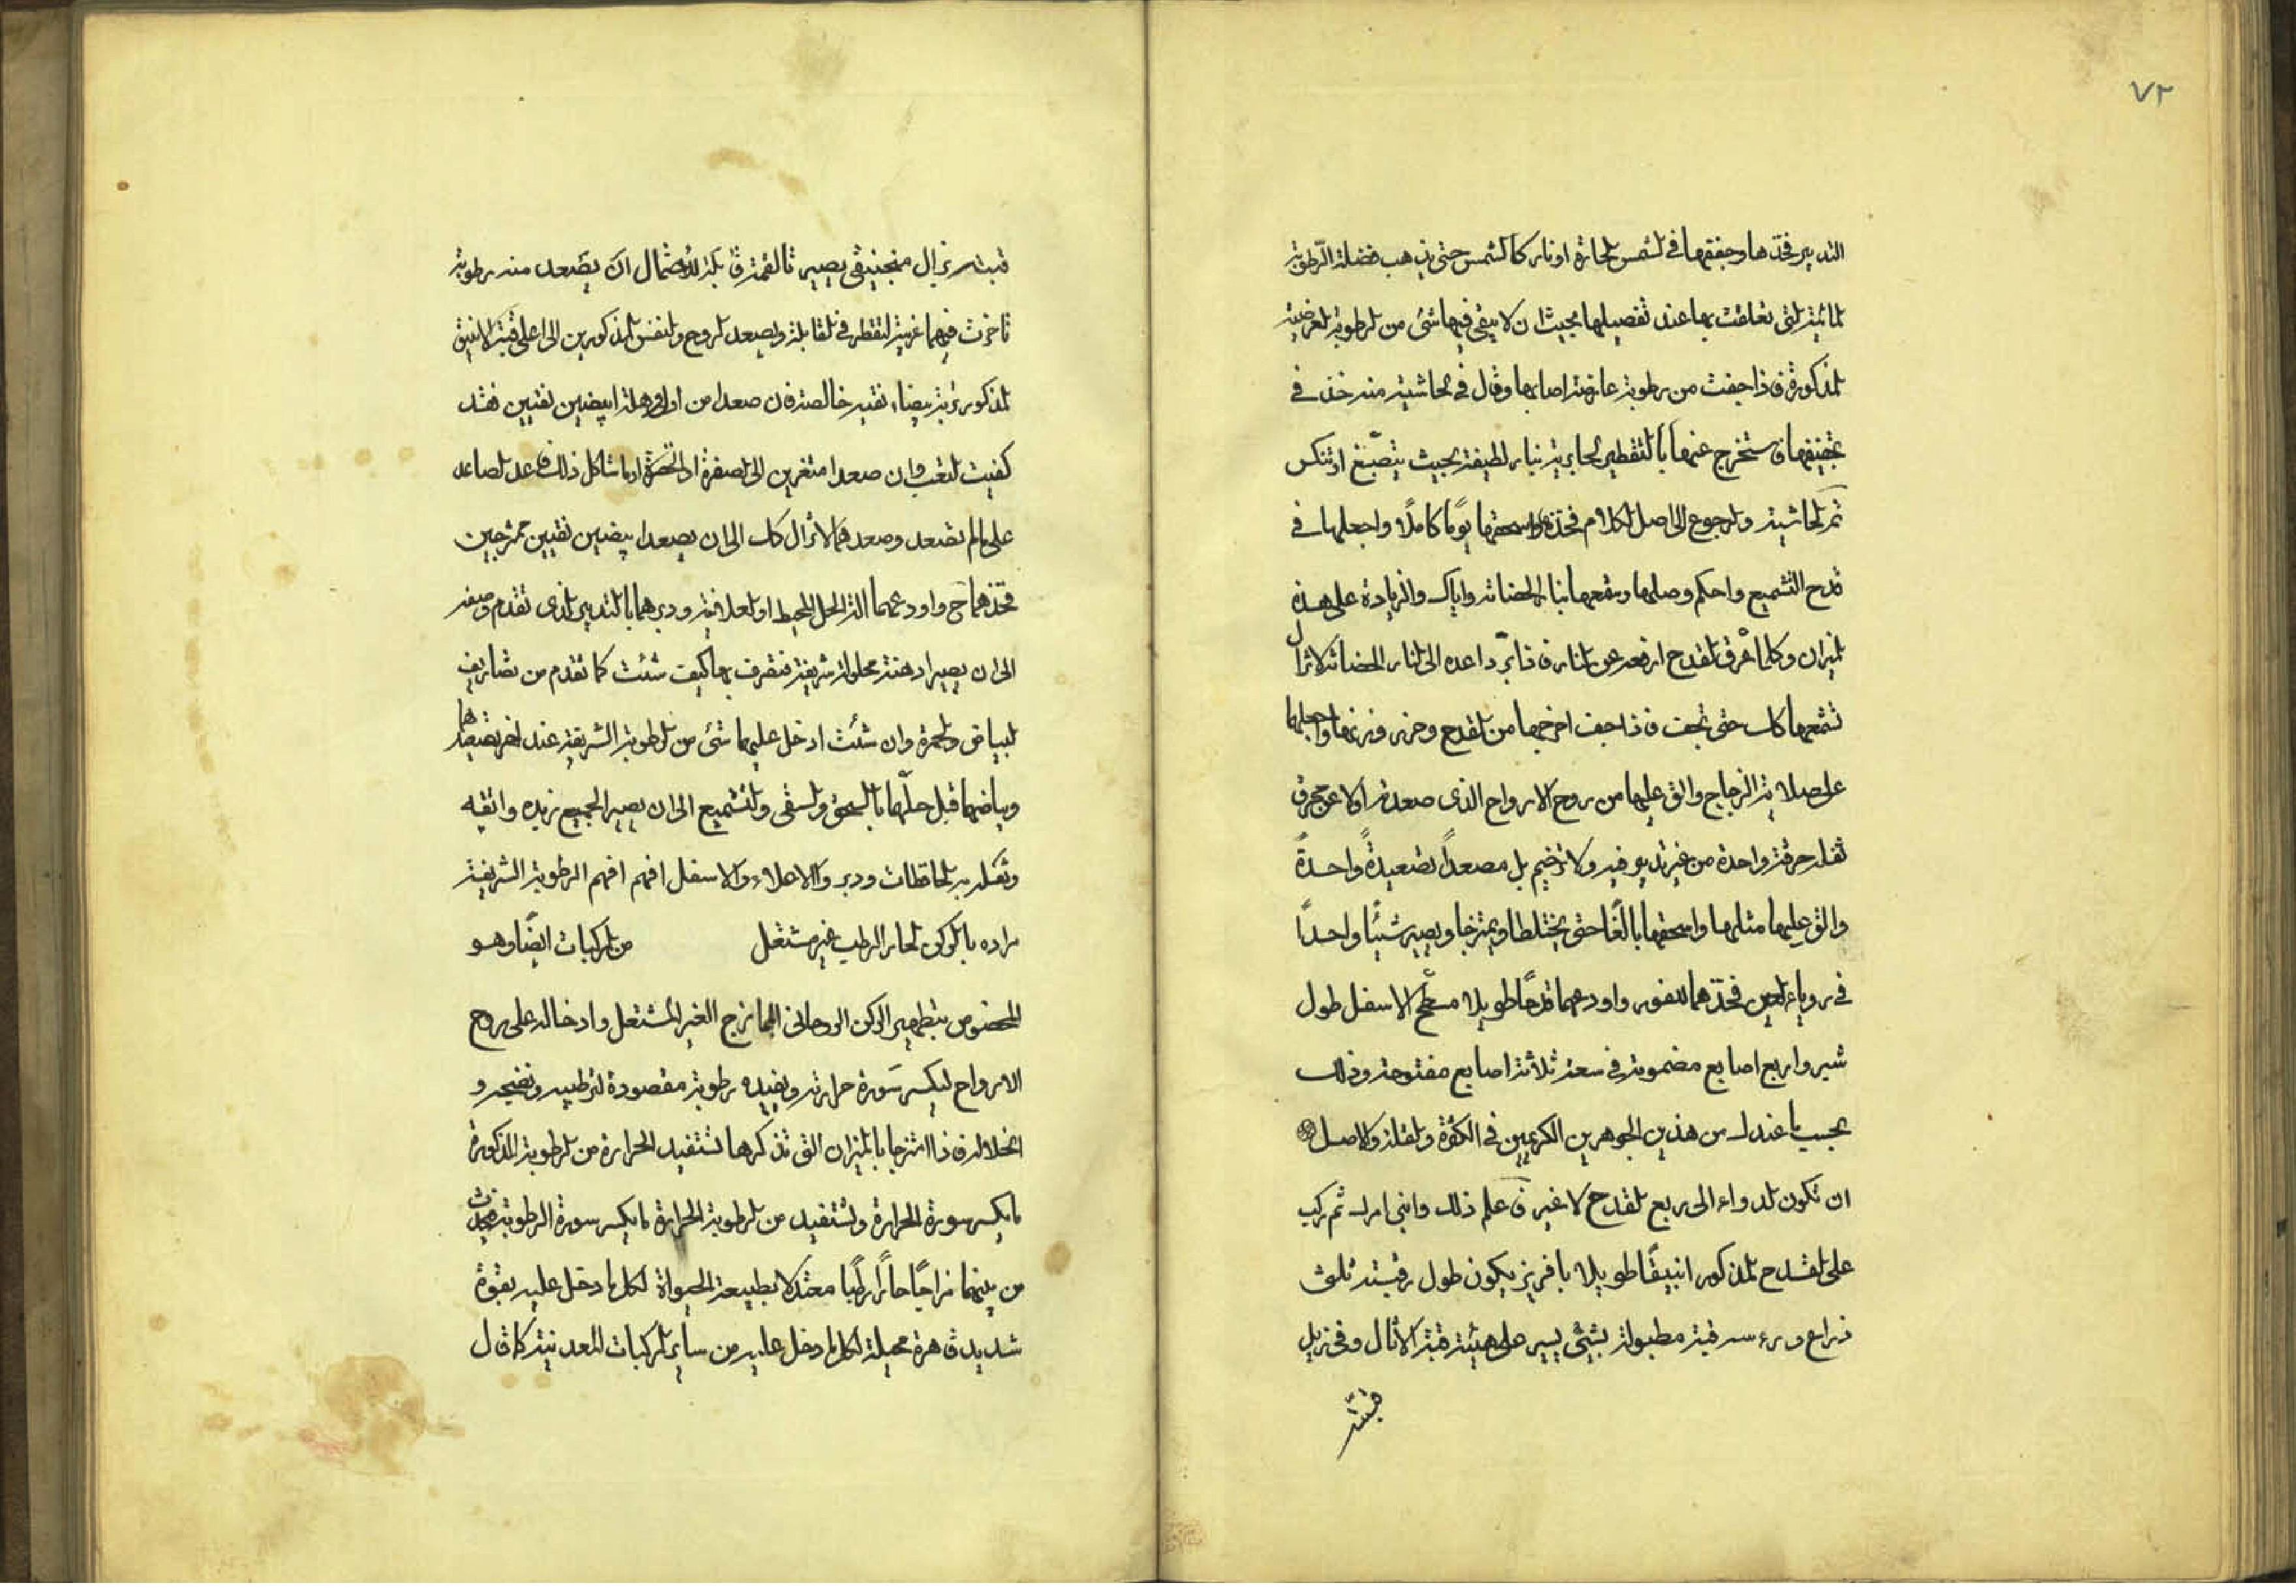 ٧٢
التدبير فخذها وجففها فى الشمس الحارة او نار كالشمس حتى يذهب فضلة الرطوبة
المائية التى تعلقت بها عند تفصيلها بحيث ان لا يبقى فيها شئ من الرطوبة العرضية
المذكورة فاذا جفت من رطوبة عارضة اصابها وقال فى الحاشية منه خذ فى
تجفيفها فاستخرج عنها بالتقطير الحارية بنار لطيفة بحيث يتصبغ او تنكس
تمر الحاشية والرجوع الى اصل الكلام فخذه واسحقها يوما كاملا واجعلها فى
قدح التشميع واحكم وصلها وشمعها بنار الحضانة واياك والزيادة على هذه
الميزان وكلما عرق القدح ارفعه عن النار فاذا برد اعده الى النار الحضانة لا تزال
تشمعها كذلك حتى تجف فاذا جفت اخرجها من القدح وحرر وزنها واجعلها
على صلاية الزجاج والق عليها من روح الارواح الذى صعدته اولا عن حجر
ثقله حرقة واحدة من غير تدبير فيه ولا ترخيم بل مصعدا تصعيدة واحدة
والق عليها مثلها واسحقها بالغا حتى يختلطا ويمتزجا ويصير شيئا واحدا
فى رؤياء العين فخذهما للفور واودعهما قدحا طويلا مسطح الاسفل طول
شبر واربع اصابع مضمومة فى سعة ثلاثة اصابع مفتوحة وذلك
بحسب ما عندك من هذين الجوهرين الكريمين فى الكثرة والقلة والاصل
ان تكون الدواء الى ربع القدح لا غير فاعلم ذلك وابنى امرك ثم ركب
على القدح المذكور انبيقا طويلا بافريز يكون طول رقبته ثلث
ذراع وراسه قبة مطبولة بشئ يسير على هيئة قبة الاثال وفى نزيل
قبته
قبته نزال منجنيقى يصير تا لقمة قابلة لاحتمال ان يصعد منه رطوبة
تاخرت فيهما غريبة لتقطر فى القابلة ويصعد الروح والنفس المذكورين الى اعلى قبة الانبيق
المذكورة بيضاء نقية خالصة فان صعدا من اول وهلة ابيضين نقيين فقد
كفيت التعب وان صعدا متغيرين الى الصفرة او الخضرة او ما شاكل ذلك فاعد الصاعد
على ما لم يصعد وصعدهما لا تزال كذلك الى ان يصعدا بيضين نقيين ممتزجين
فخذهما ح واودعهما الة الحل المحيط او العلاقية ودبرهما بالتدبير الذى تقدم وصفه
الى ان يصيرا دهنة محلولة شريفة فتصرف بها كيف شئت كما تقدم من تصاريف
البياض والحمرة وان شئت ادخل عليهما شئ من الرطوبة الشريفة عند اخر تصعيدها
وبياضهما قبل حلهما بالسحق والسقى والتشميع الى ان يصير الجميع زبده وانقيه
وتكلد به الحاقظات ودبر والاعلاء والاسفل افهم افهم افهم الرطوبة الشريفة
مراده بالركن الحار الرطب غير مشتعل من المركبات ايضا وهو
المخصوص بتطهير الركن الروحانى الممازج الغير المشتعل وادخاله على روح
الارواح ليكسر سورة حرارته ويفيده رطوبة مقصودة لترطيبه وتضيجه و
انحلاله فاذا امتزجا بالميزان التى تذكرها تستفيد الحرارة من الرطوبة المذكورة
ما يكسر سورة الحرارة وتستفيد من الرطوبة الحرارة ما يكسر سورة الرطوبة فيحدث
من بينهما مزاجا حارا رطبا معتدلا بطبيعة الحيواة لكل ما دخل عليه بقوة
شديدة قاهرة محيلة لكل ما دخل عليه من ساير المركبات المعدنية كما قال